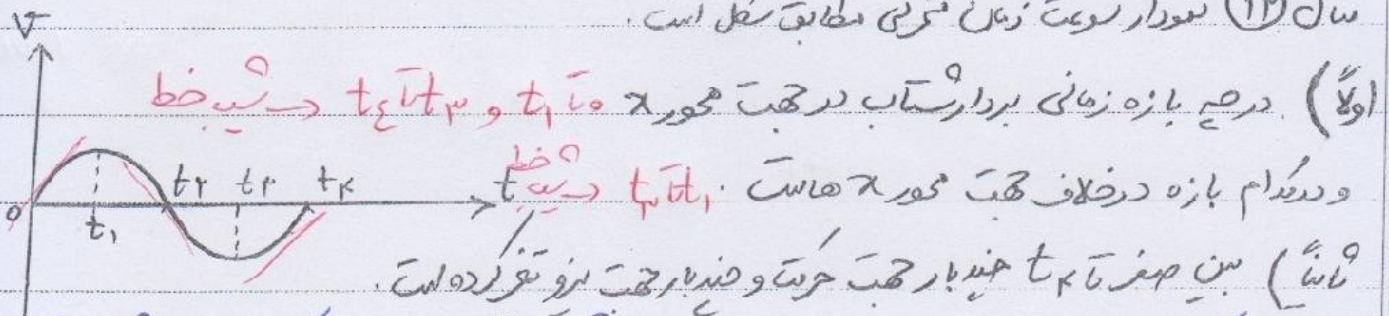 مثال ۱۲) نمودار سرعت زمان متحرکی مطابق شکل است.
V
اولاً) در چه بازه زمانی بردار شتاب در جهت محور x ۰ تا t۱ و t۳ تا t٤ → شیب خط
و در کدام بازه در خلاف جهت محور x هاست. t۱ تا t۳ → شیب خط
۰ t۱ t۲ t۳ t۴ t
ثانیاً) بین صفر تا t۴ چند بار جهت حرکت و چند بار جهت نیرو تغییر کرده است.